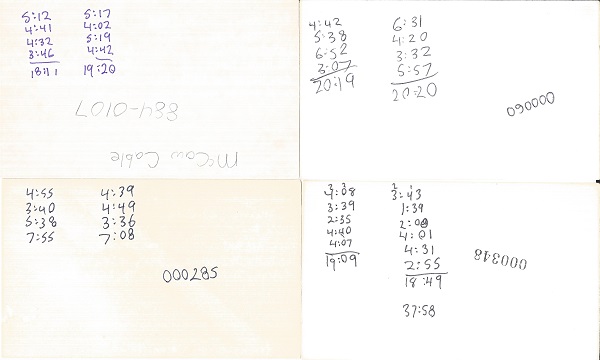 5:12 5:17
4:41 4:02
4:32 5:19
3:46 4:42
18:11 19:20
McCaw Cable
884-0107
4:42 6:31
5:38 4:20
6:52 3:32
3:07 5:57
20:19 20:20
000090
4:55 4:39
3:40 4:49
5:38 3:36
7:55 7:08
000285
4:08 3:43
3:39 1:39
2:35 2:00
4:40 4:01
4:07 4:31
19:09 2:55
18:49
37:58